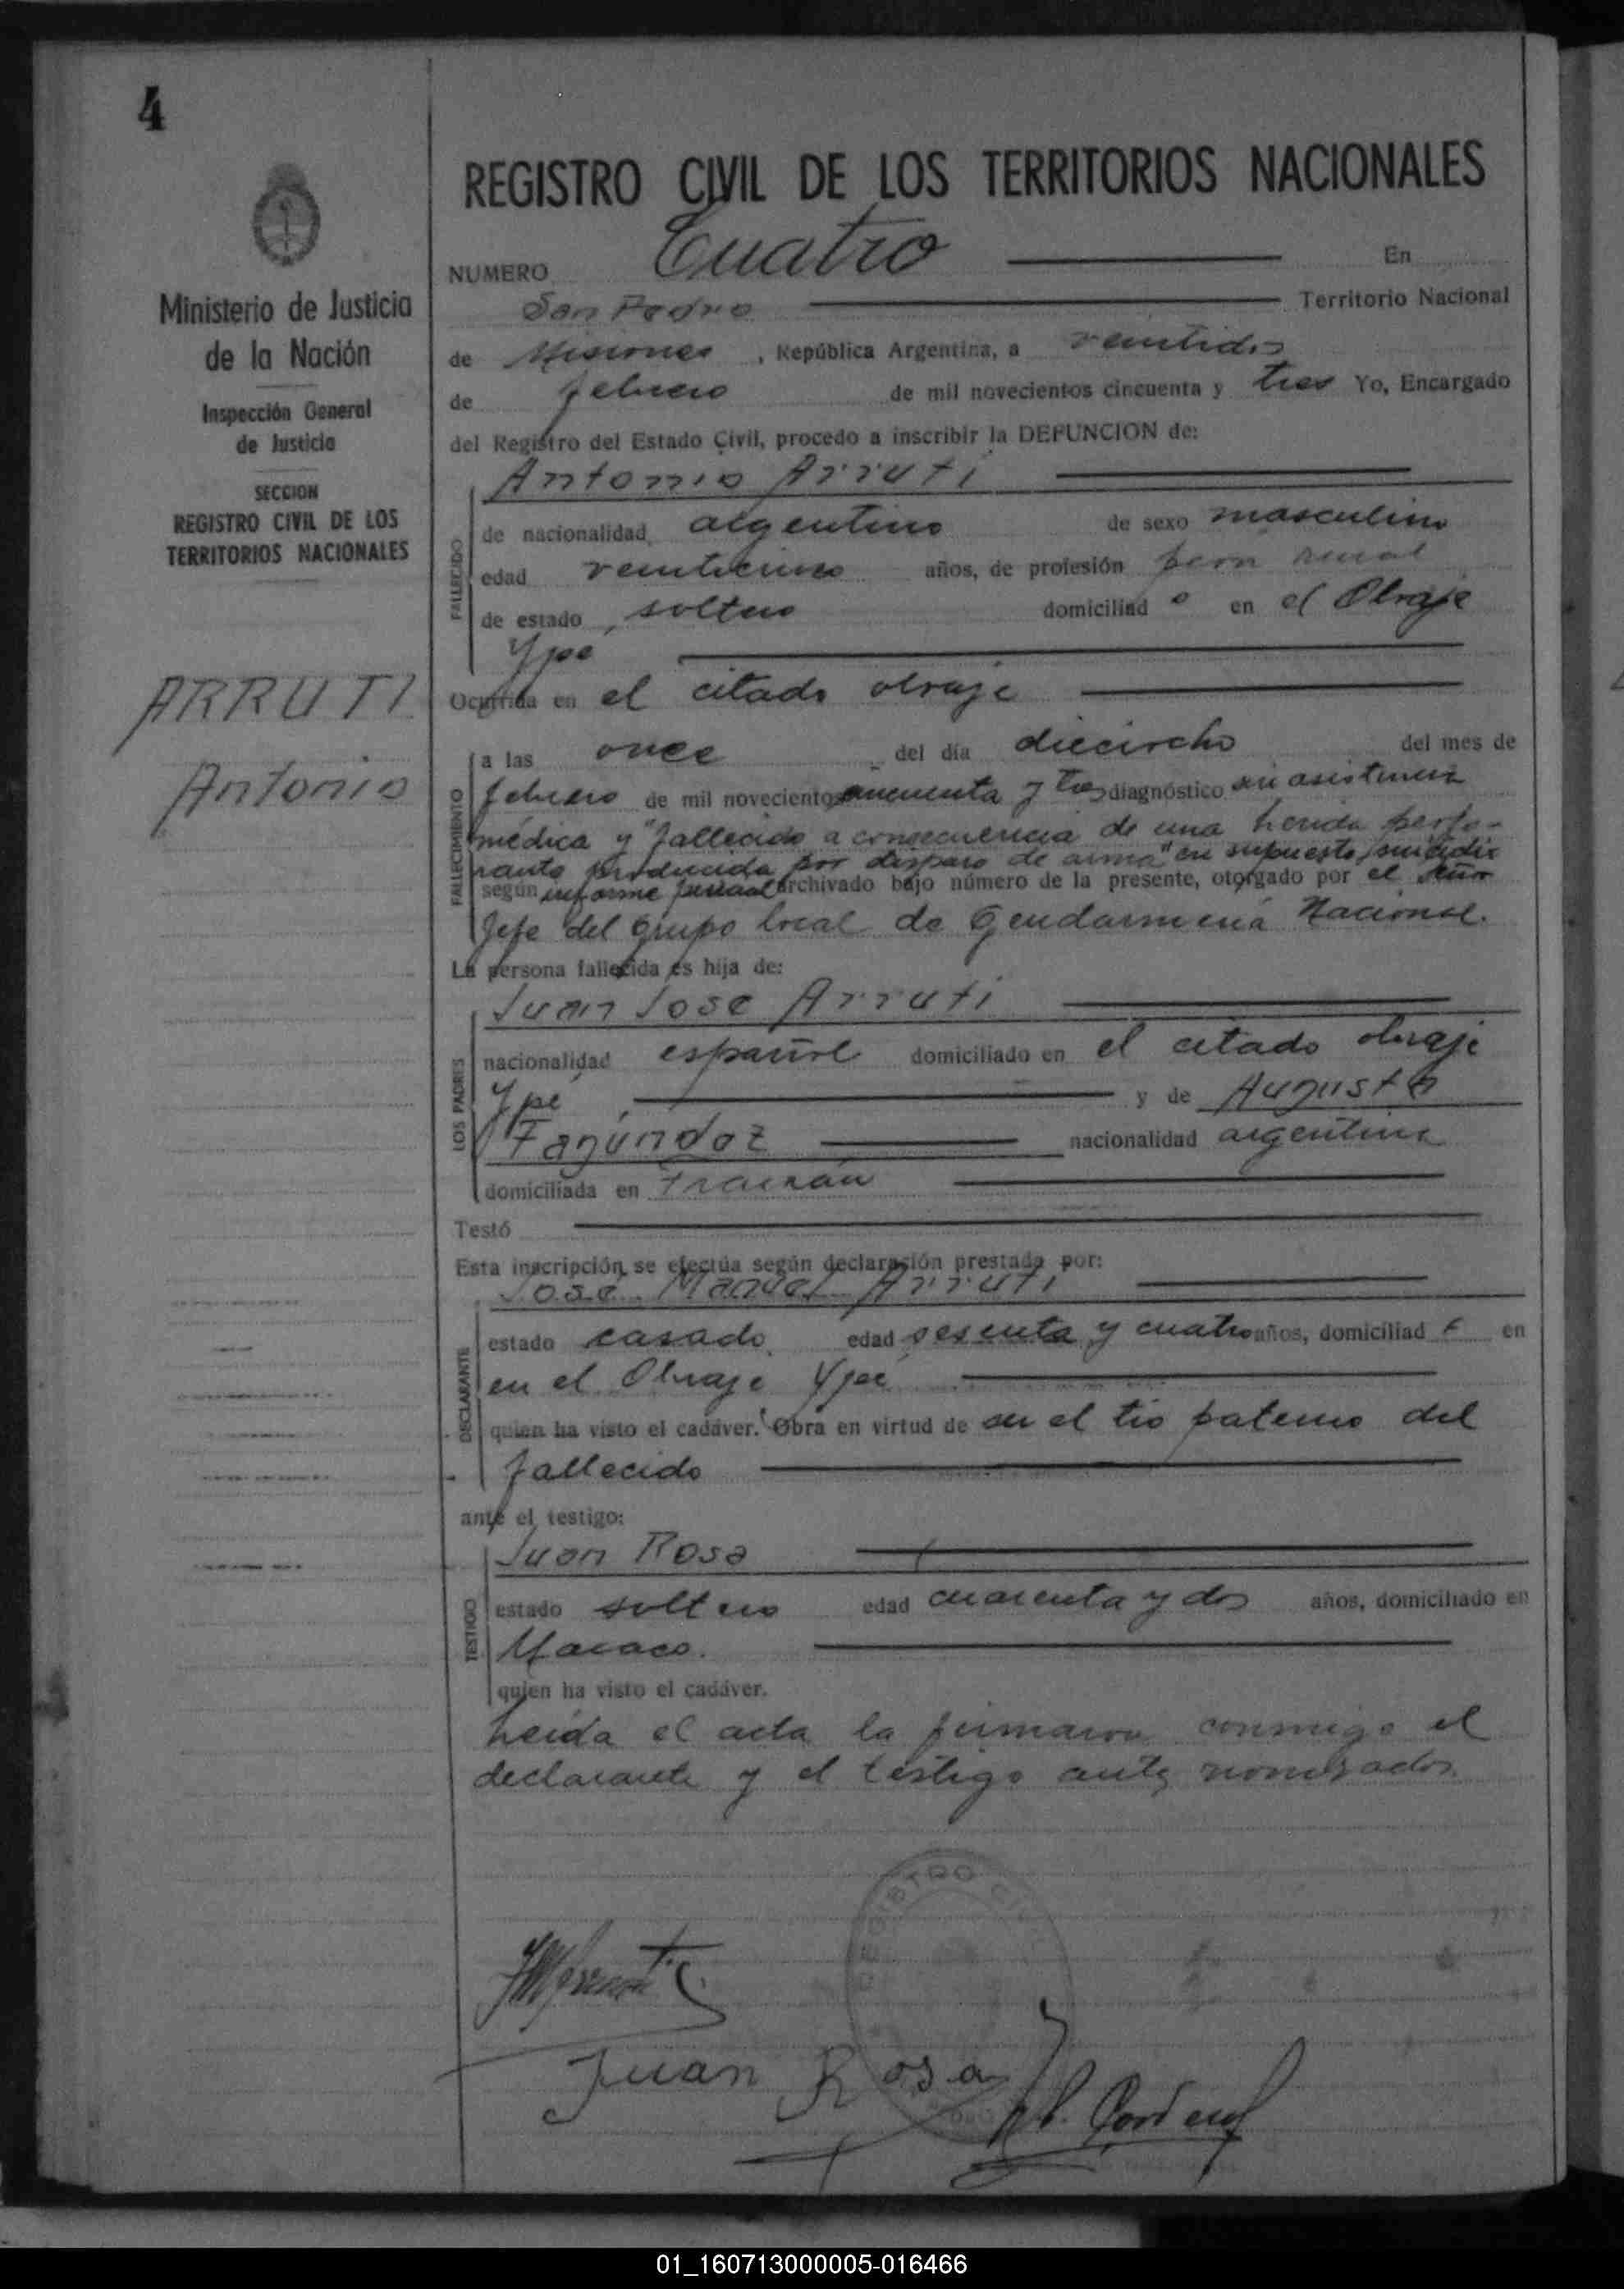 4
Ministerio de Justicia
de la Nación
Inspección General
de Justicia
SECCION
REGISTRO CIVIL DE LOS
TERRITORIOS NACIONALES
ARRUTI
Antonio
REGISTRO CIVIL DE LOS TERRITORIOS NACIONALES
NUMERO Cuatro En
San Pedro Territorio Nacional
de Misiones, República Argentina, a veintidos
de febrero de mil novecientos cincuenta y tres Yo, Encargado
del Registro del Estado Civil, procedo a inscribir la DEFUNCION de:
Antonio Arruti
FALLECIDO
de nacionalidad argentino de sexo masculino
edad veinticinco años, de profesión peon rural
de estado soltero domiciliad o en el Obraje
Ypé
Ocurrida en el citado obraje
FALLECIMIENTO
a las once del día dieciocho del mes de
febrero de mil novecientos cincuenta y tres diagnóstico sin asistencia
médica y "fallecido a consecuencia de una herida perfo-
rante producida por disparo de arma" en supuesto suicidio
según informe archivado bajo número de la presente, otorgado por el Señor
Jefe del grupo local de Gendarmería Nacional.
La persona fallecida es hija de:
Juan Jose Arruti
LOS PADRES
nacionalidad español domiciliado en el citado obraje
Ypé y de Augusta
Fagúndez nacionalidad argentina
domiciliada en Fracrán
Testó
Esta inscripción se efectúa según declaración prestada por:
José Manuel Arruti
DECLARANTE
estado casado edad sesenta y cuatro años, domiciliad o en
en el Obraje Ypé
quien ha visto el cadáver. Obra en virtud de ser el tio paterno del
fallecido
ante el testigo:
Juan Rosa
TESTIGO
estado soltero edad cuarenta y dos años, domiciliado en
Macaco.
quien ha visto el cadáver.
Leída el acta la firmaron conmigo el
declarante y el testigo ante nombrados.
REGISTRO CIVIL
Juan Rosa
01_160713000005-016466